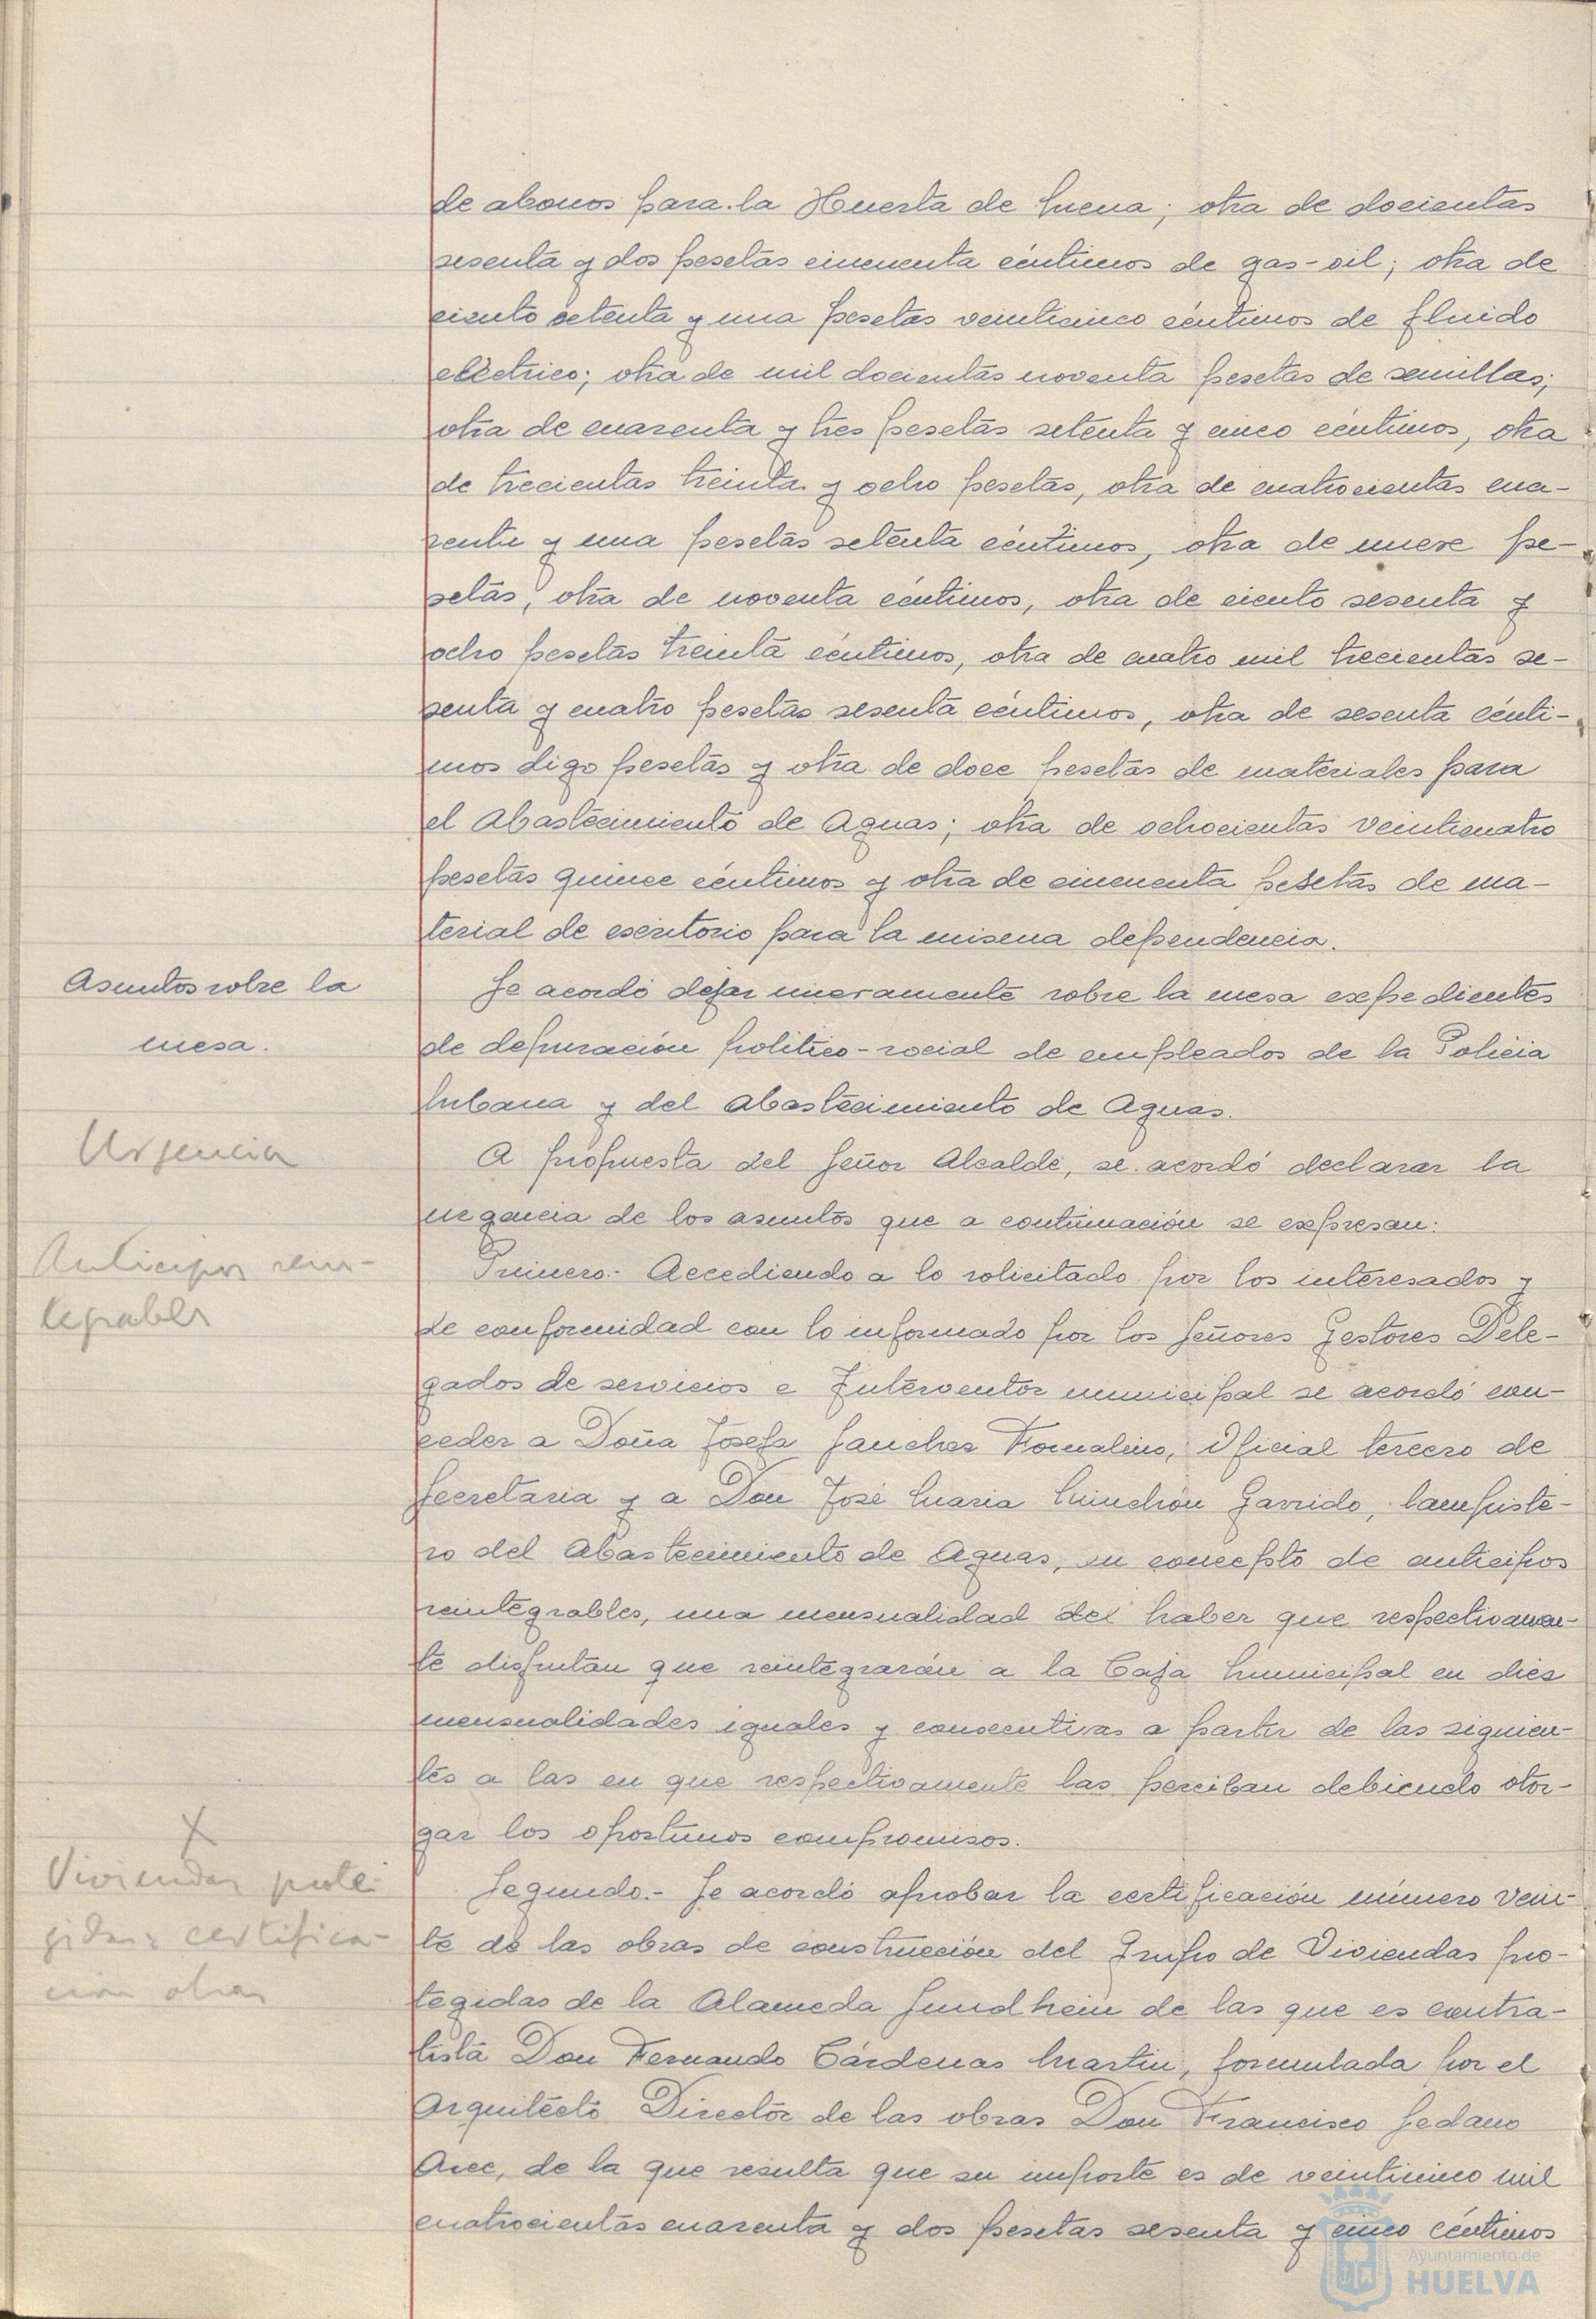 de abonos para la Huerta de Mena; otra de docientas
sesenta y dos pesetas cincuenta céntimos de gas-oil; otra de
ciento setenta y una pesetas veinticinco céntimos de fluido
eléctrico; otra de mil docientas noventa pesetas de semillas;
otra de cuarenta y tres pesetas setenta y cinco céntimos, otra
de trecientas treinta y ocho pesetas, otra de cuatrocientas cua-
renta y una pesetas setenta céntimos, otra de nueve pe-
setas, otra de noventa céntimos, otra de ciento sesenta y
ocho pesetas treinta céntimos, otra de cuatro mil trecientas se-
senta y cuatro pesetas sesenta céntimos, otra de sesenta cénti-
mos digo pesetas y otra de doce pesetas de materiales para
el Abastecimiento de Aguas; otra de ochocientas veinticuatro
pesetas quince céntimos y otra de cincuenta pesetas de ma-
terial de escritorio para la misma dependencia.
Asuntos sobre la
mesa.
Se acordó dejar nuevamente sobre la mesa expedientes
de depuración político-social de empleados de la Policia
Urbana y del Abastecimiento de Aguas.
Urgencia
A propuesta del Señor Alcalde, se acordó declarar la
urgencia de los asuntos que a continuación se expresan:
Anticipos rein-
tegrables
Primero.- Accediendo a lo solicitado por los interesados y
de conformidad con lo informado por los Señores Gestores Dele-
gados de servicios e Interventor municipal se acordó con-
ceder a Doña Josefa Sanchez Tornalino, Oficial tercero de
Secretaria y a Don José Maria Minchón Garrido, lampiste-
ro del Abastecimiento de Aguas, en concepto de anticipos
reintegrables, una mensualidad del haber que respectivamen-
te disfrutan que reintegrarán a la Caja Municipal en diez
mensualidades iguales y consecutivas a partir de las siguien-
tes a las en que respectivamente las perciban debiendo otor-
gar los oportunos compromisos.
X
Viviendas prote-
gidas: certifica-
ción obras
Segundo.- Se acordó aprobar la certificación número vein-
te de las obras de construcción del Grupo de Viviendas pro-
tegidas de la Alameda Sundhein de las que es contra-
tista Don Fernando Cárdenas Martin, formulada por el
Arquitecto Director de las obras Don Francisco Sedano
Arce, de la que resulta que su importe es de veinticinco mil
cuatrocientas cuarenta y dos pesetas sesenta y cinco céntimos
Ayuntamiento de
HUELVA